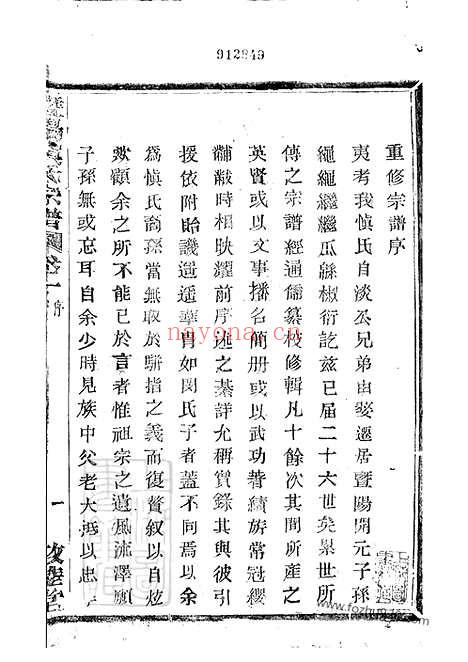 912849
重修宗譜序
夷考我慎氏自淡公兄弟由婺遷居暨陽開元子孫
繩繩繼繼瓜緜椒衍訖茲已屆二十六世矣累世所
傳之宗譜經通儒纂校修輯凡十餘次其間所產之
英賢或以文事播名簡册或以武功著績旂常冠纓
黼黻時相映耀前序述之綦詳允稱實錄其與彼引
援依附貽譏遥遥華胄如閔氏子者蓋不同焉以余
為慎氏裔孫當無取於駢指之義而復贅叙以自炫
歟顧余之所不能已於言者惟祖宗之遺風流澤願
子孫無或忘耳自余少時見族中父老大抵以忠
氏宗譜 卷一 序
一
nayona.cn
www.fozhu